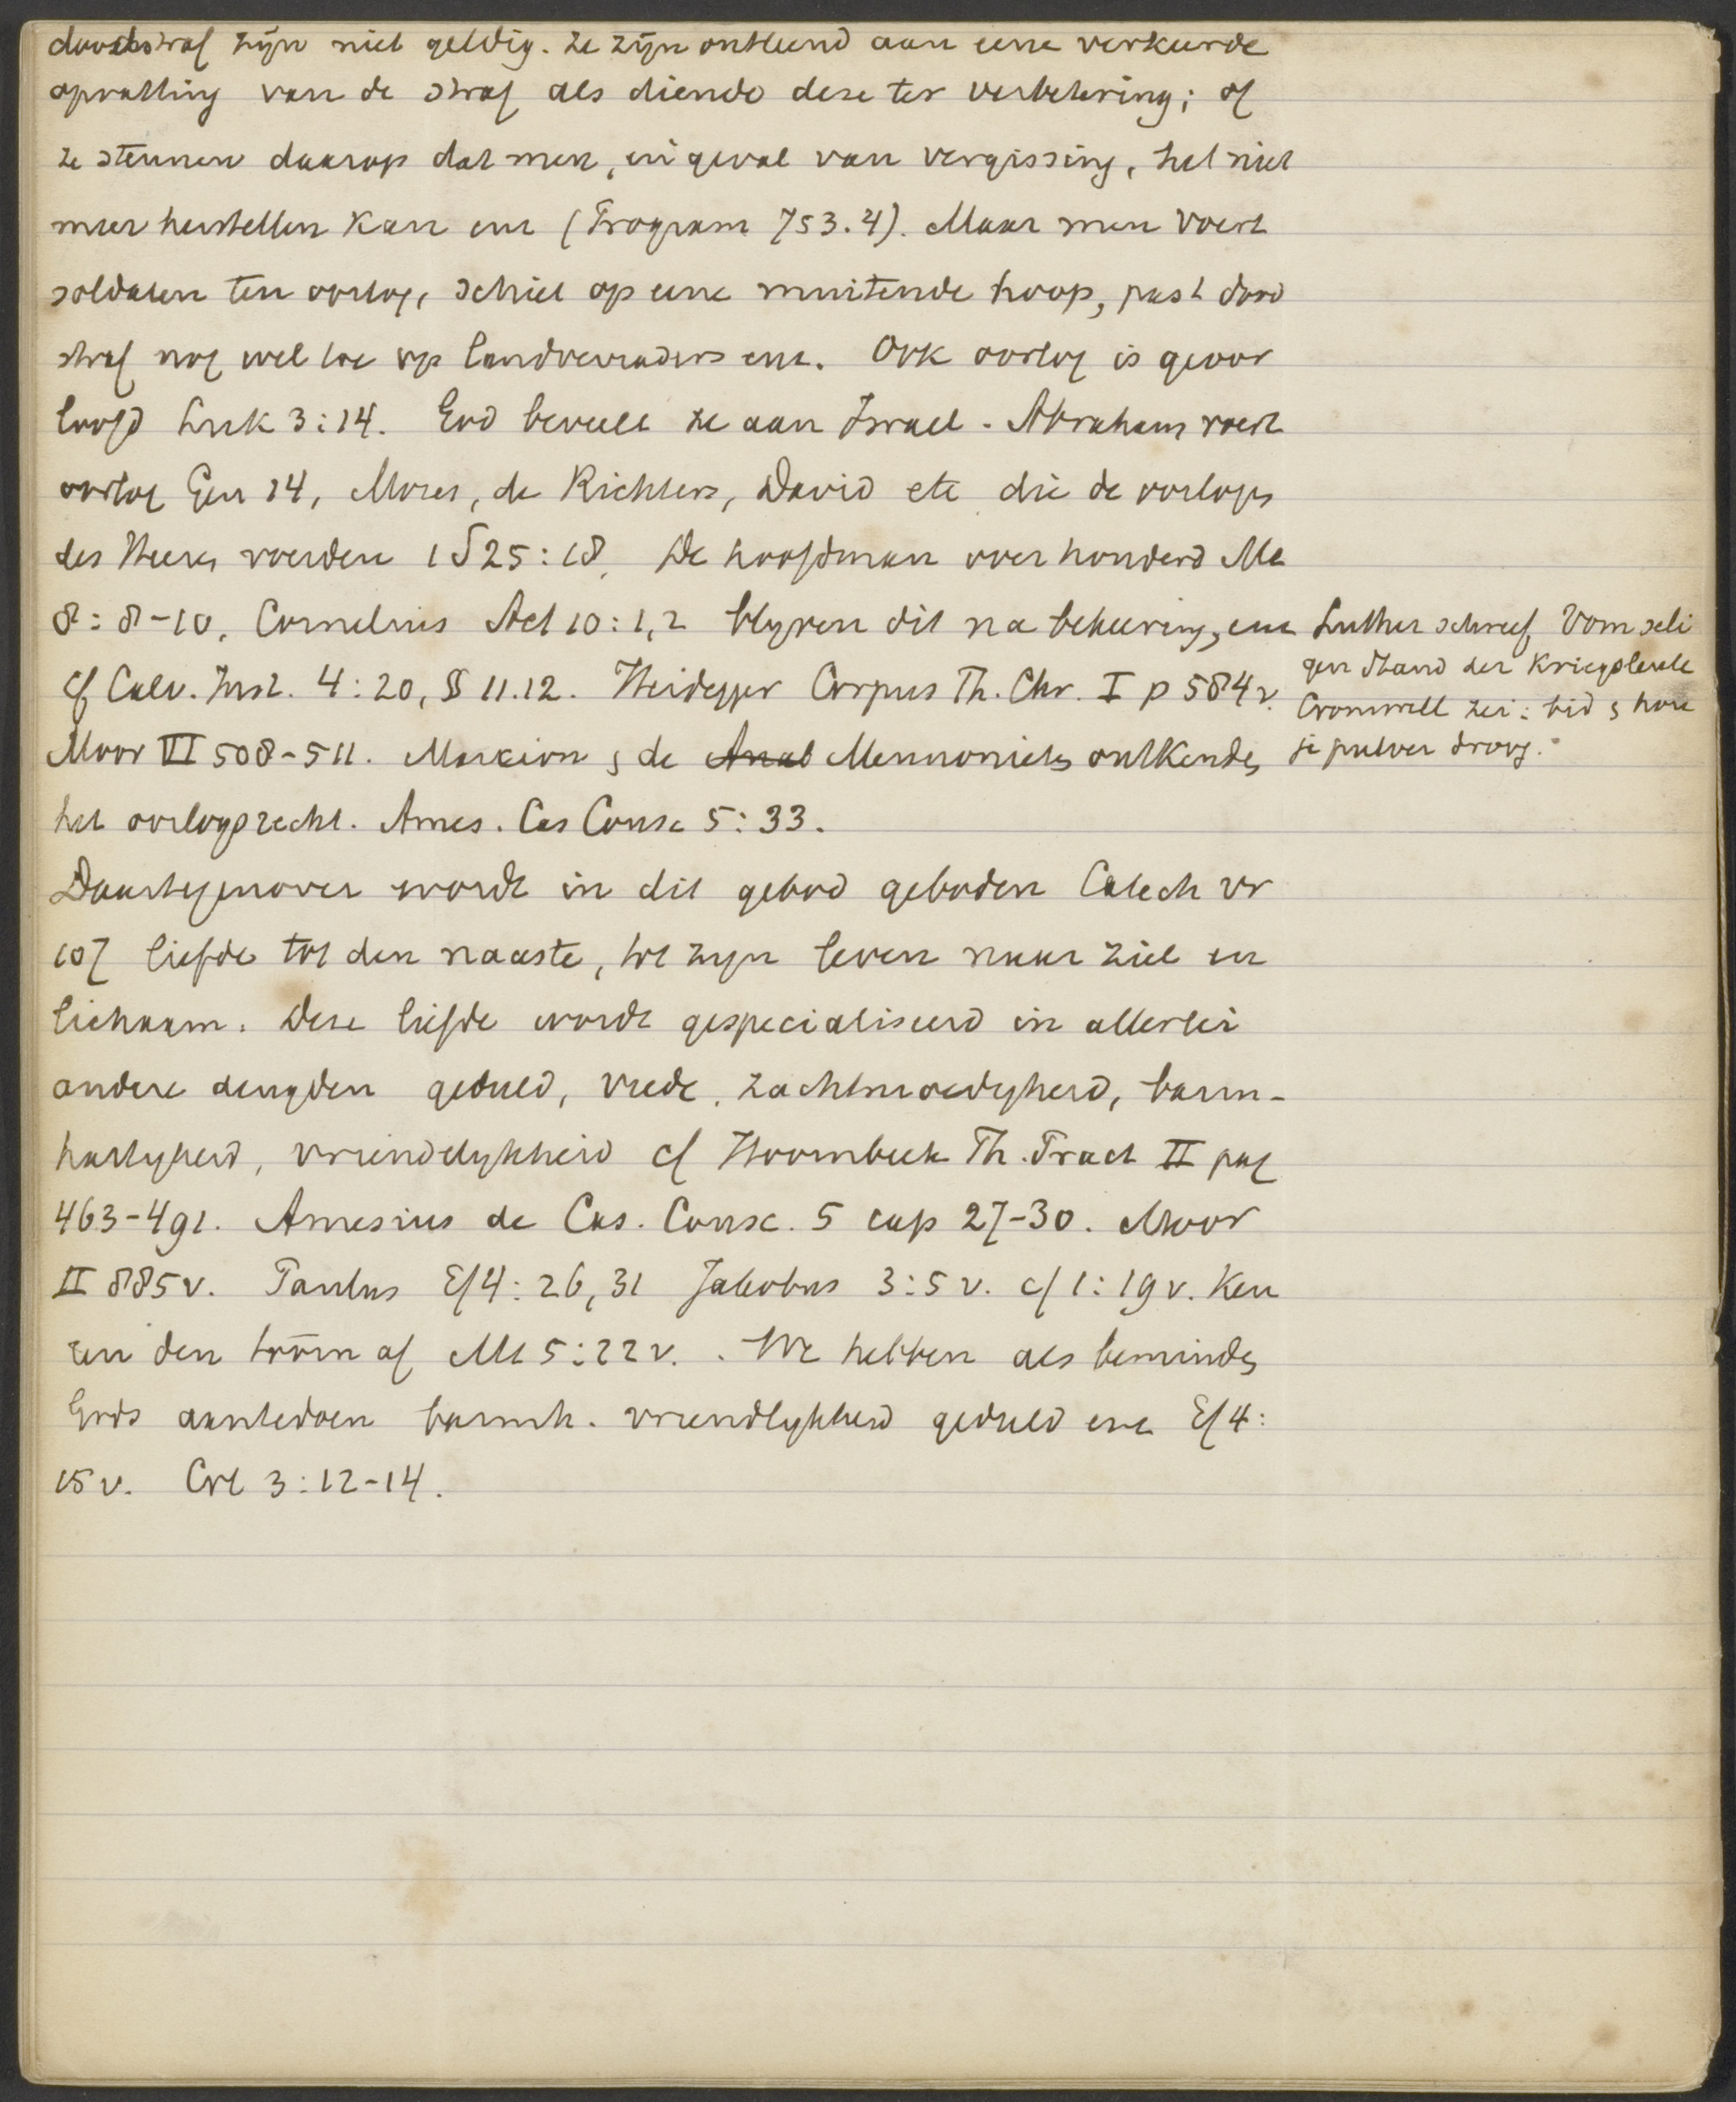 doodstraf zijn niet geldig. Ze zijn ontleend aan eene verkeerde
opvatting van de straf als diende deze ter verbetering; of
ze steunen daarop dat men, in geval van vergissing, het niet
meer herstellen kan enz (Program 753.4). Maar men voert
soldaten ten oorlog, schiet op eene muitende hoop, past dood
straf nog wel toe op landverraders enz. Ook oorlog is geoor
loofd Luk 3:14. God beveelt ze aan Israel. Abraham voert
oorlog Gen 14, Mozes, de Richters, David etc die de oorlogen
des Heeren voerden 1 S 25:18. De hoofdman over honderd Mt
8:8-10, Cornelius Act 10:1,2 blyven dit na bekeering, enz
cf Calv. Inst. 4:20, § 11.12. Heidegger Corpus Th. Chr. I p 584v.
Luther schreef Vom seli
gen Stand der Kriegsleute
Cromwell zei: bid & hou
je pulver droog.
Moor VI 508-511. Marcion & de Anab Mennonieten ontkenden
het oorlogsrecht. Ames. Cas Consc 5:33.
Daartegenover wordt in dit gebod geboden Catech vr
107 liefde tot den naaste, tot zyn leven naar ziel en
lichaam. Deze liefde wordt gespecialiseerd in allerlei
andere deugden geduld, vrede, zachtmoedigheid, barm-
hartigheid, vriendelykheid cf Hoornbeek Th. Pract II pag
463-491. Amesius de Cas. Consc. 5 cap 27-30. Moor
II 885v. Paulus Ef 4:26,31 Jakobus 3:5 v. cf 1:19 v. Keu
ren den toorn af Mt 5:22 v. . We hebben als beminden
Gods aantedoen barmh. vriendlykheid geduld enz Ef 4:
15 v. Col 3:12-14.